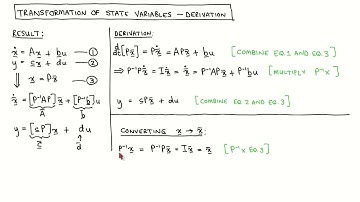 TRANSFORMATION OF STATE VARIABLES – DERIVATION
RESULT:
ẋ = Ax + bu — ①
y = cx + du — ②
⇓ x = Px̃ — ③
x̃̇ = [P⁻¹AP]x̃ + [P⁻¹b]u
Ã b̃
y = [cP]x̃ + du
c̃ d̃
DERIVATION:
d/dt[Px̃] = Px̃̇ = APx̃ + bu [COMBINE EQ.1 AND EQ.3]
⇒ P⁻¹Px̃̇ = Ix̃̇ = x̃̇ = P⁻¹APx̃ + P⁻¹bu [MULTIPLY P⁻¹×]
y = cPx̃ + du [COMBINE EQ.2 AND EQ.3]
CONVERTING x → x̃:
P⁻¹x = P⁻¹Px̃ = Ix̃ = x̃ [P⁻¹ × EQ.3]